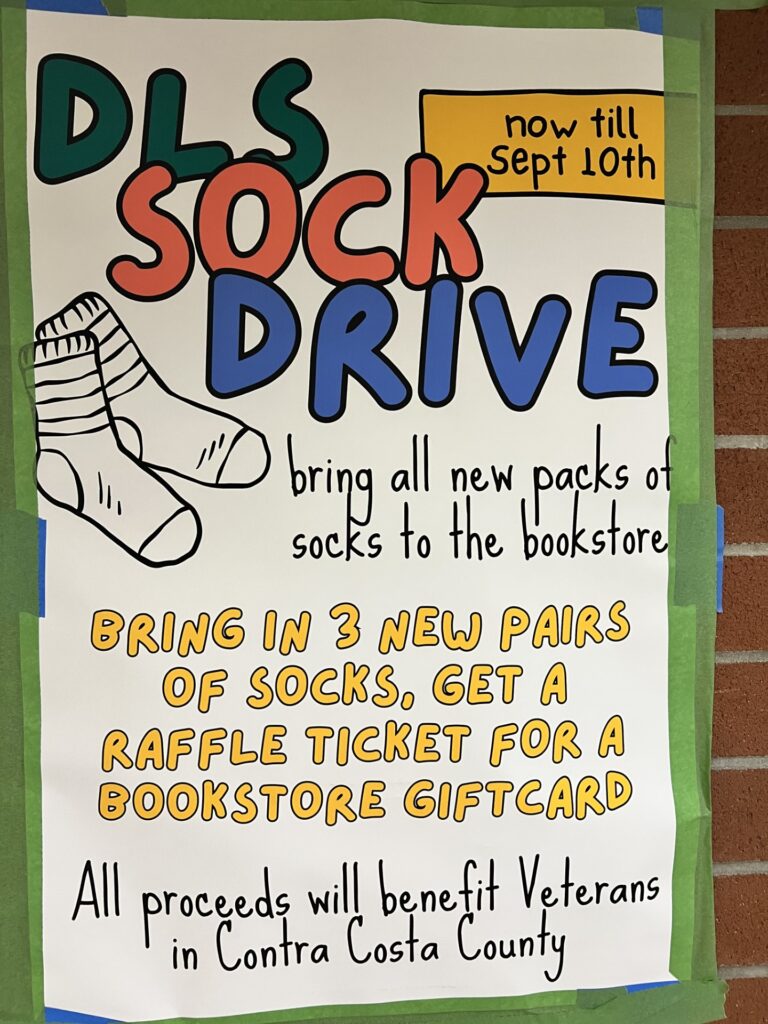 DLS
now till
Sept 10th
SOCK
DRIVE
bring all new packs of
socks to the bookstore
BRING IN 3 NEW PAIRS
OF SOCKS, GET A
RAFFLE TICKET FOR A
BOOKSTORE GIFTCARD
All proceeds will benefit Veterans
in Contra Costa County